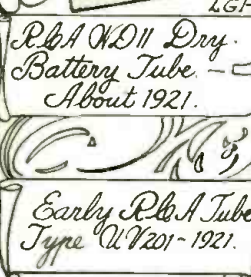 LGH
RCA WD11 Dry
Battery Tube —
About 1921.
Early RCA Tube
Type UV201-1921.